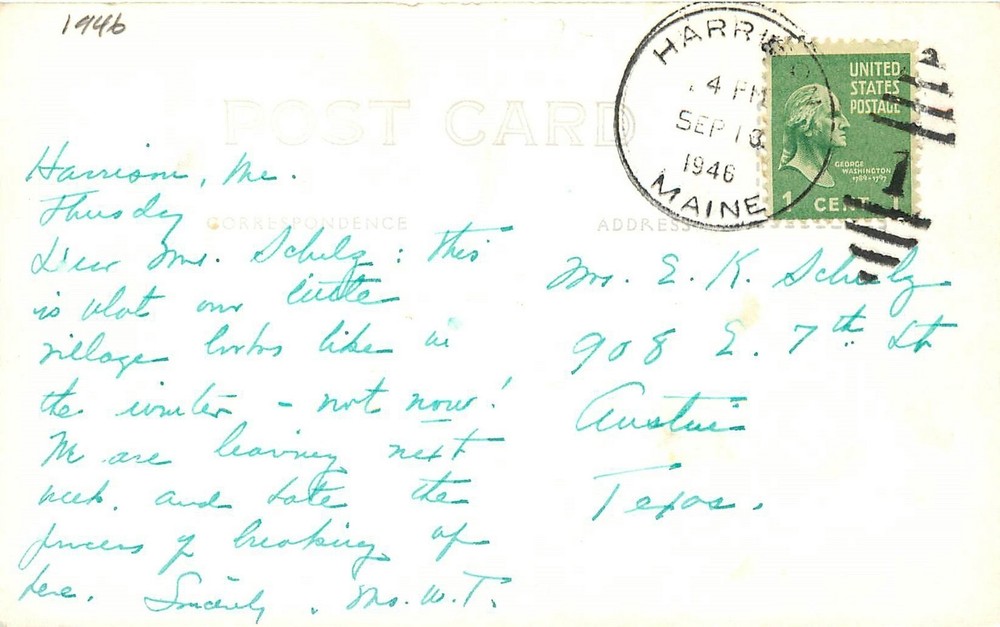 1946
HARRISON
4 PM
SEP 1
1946
MAINE
UNITED
STATES
POSTAGE
GEORGE
WASHINGTON
1789-1797
1 CENT 1
POST CARD
CORRESPONDENCE
ADDRESS
Harrison, Me.
Thursday
Dear Mrs. Schulz: This
is what our little
village looks like in
the winter - not now!
We are leaving next
week. and hate the
process of breaking up
here. Sincerely, Mrs. W.T.
Mrs. E. K. Schulz
908 E. 7th St
Austin
Texas.